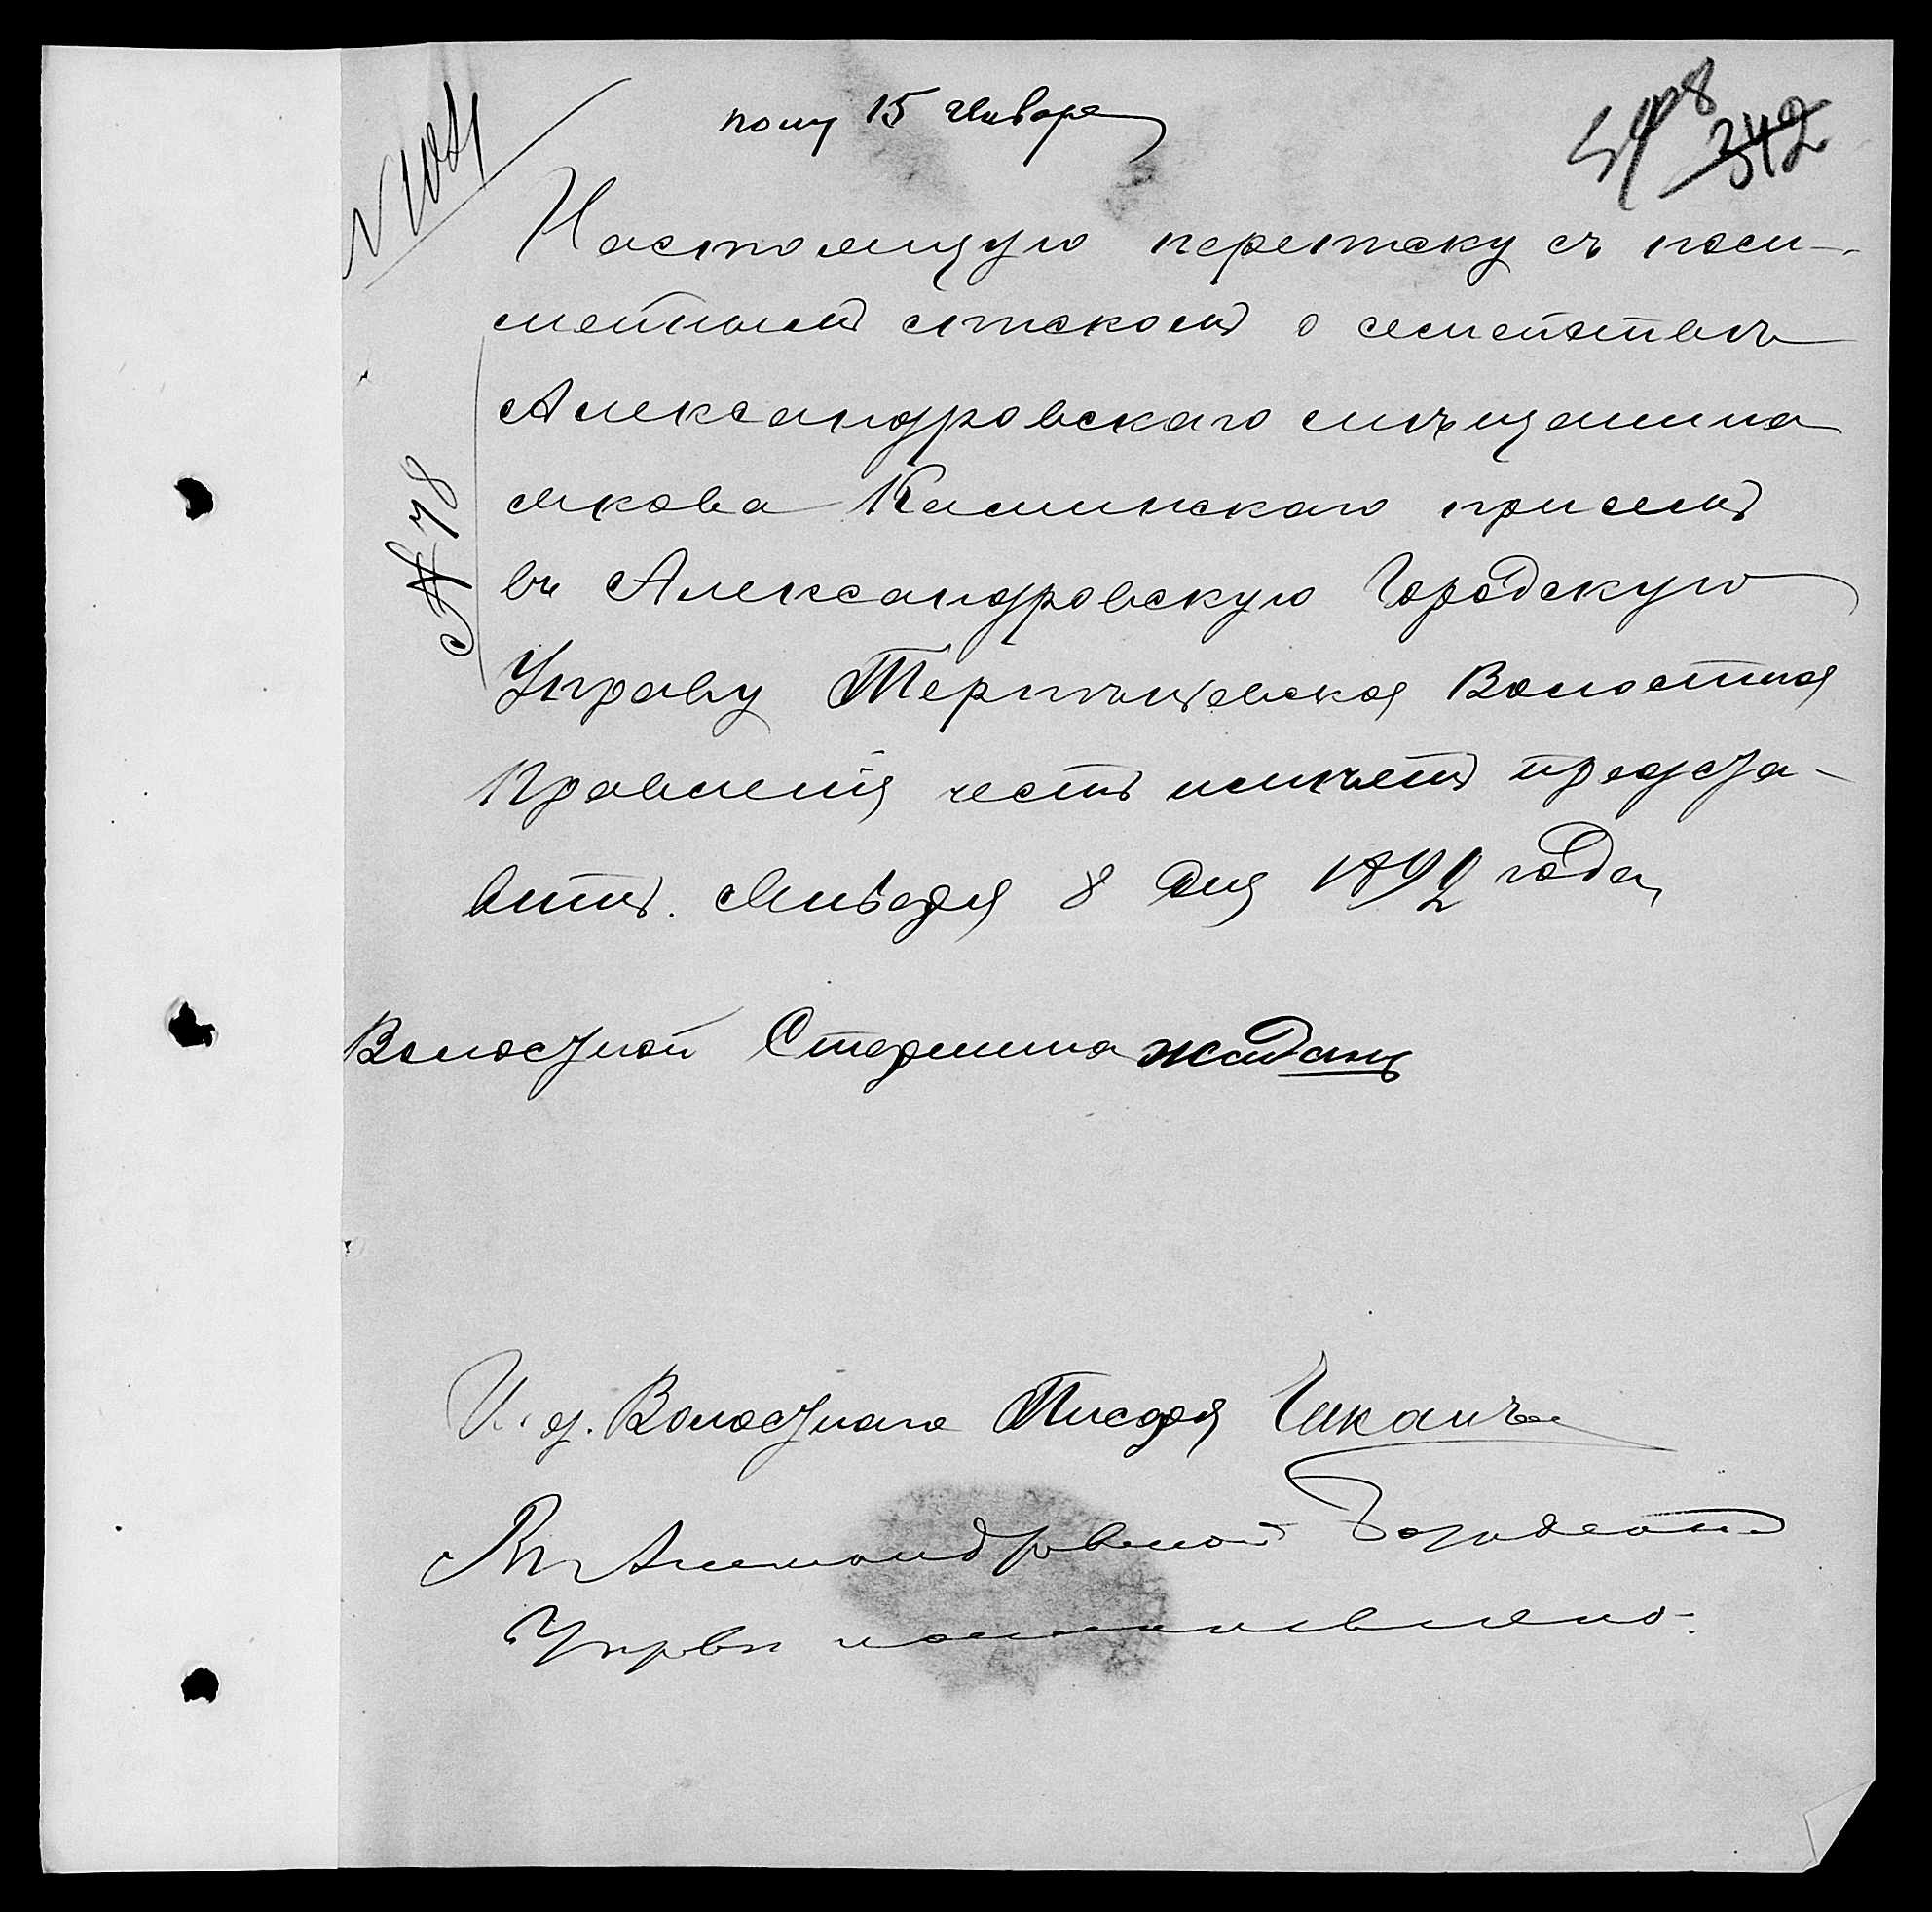 пол 15 Января
548 342
N 1084
Настоящую переписку съ посе-
мейнымъ спискомъ о семействѣ
Александровскаго мѣщанина
Якова Каминскаго при семъ
въ Александровскую Городскую
№ 78
Управу Терпѣньевское Волостное
Правленіе честь имѣетъ предста-
вить. Января 8 дня 1892 года
Волостной Старшина Жадань
И. д. Волостнаго Писаря
Въ Александровской Городской
Управѣ